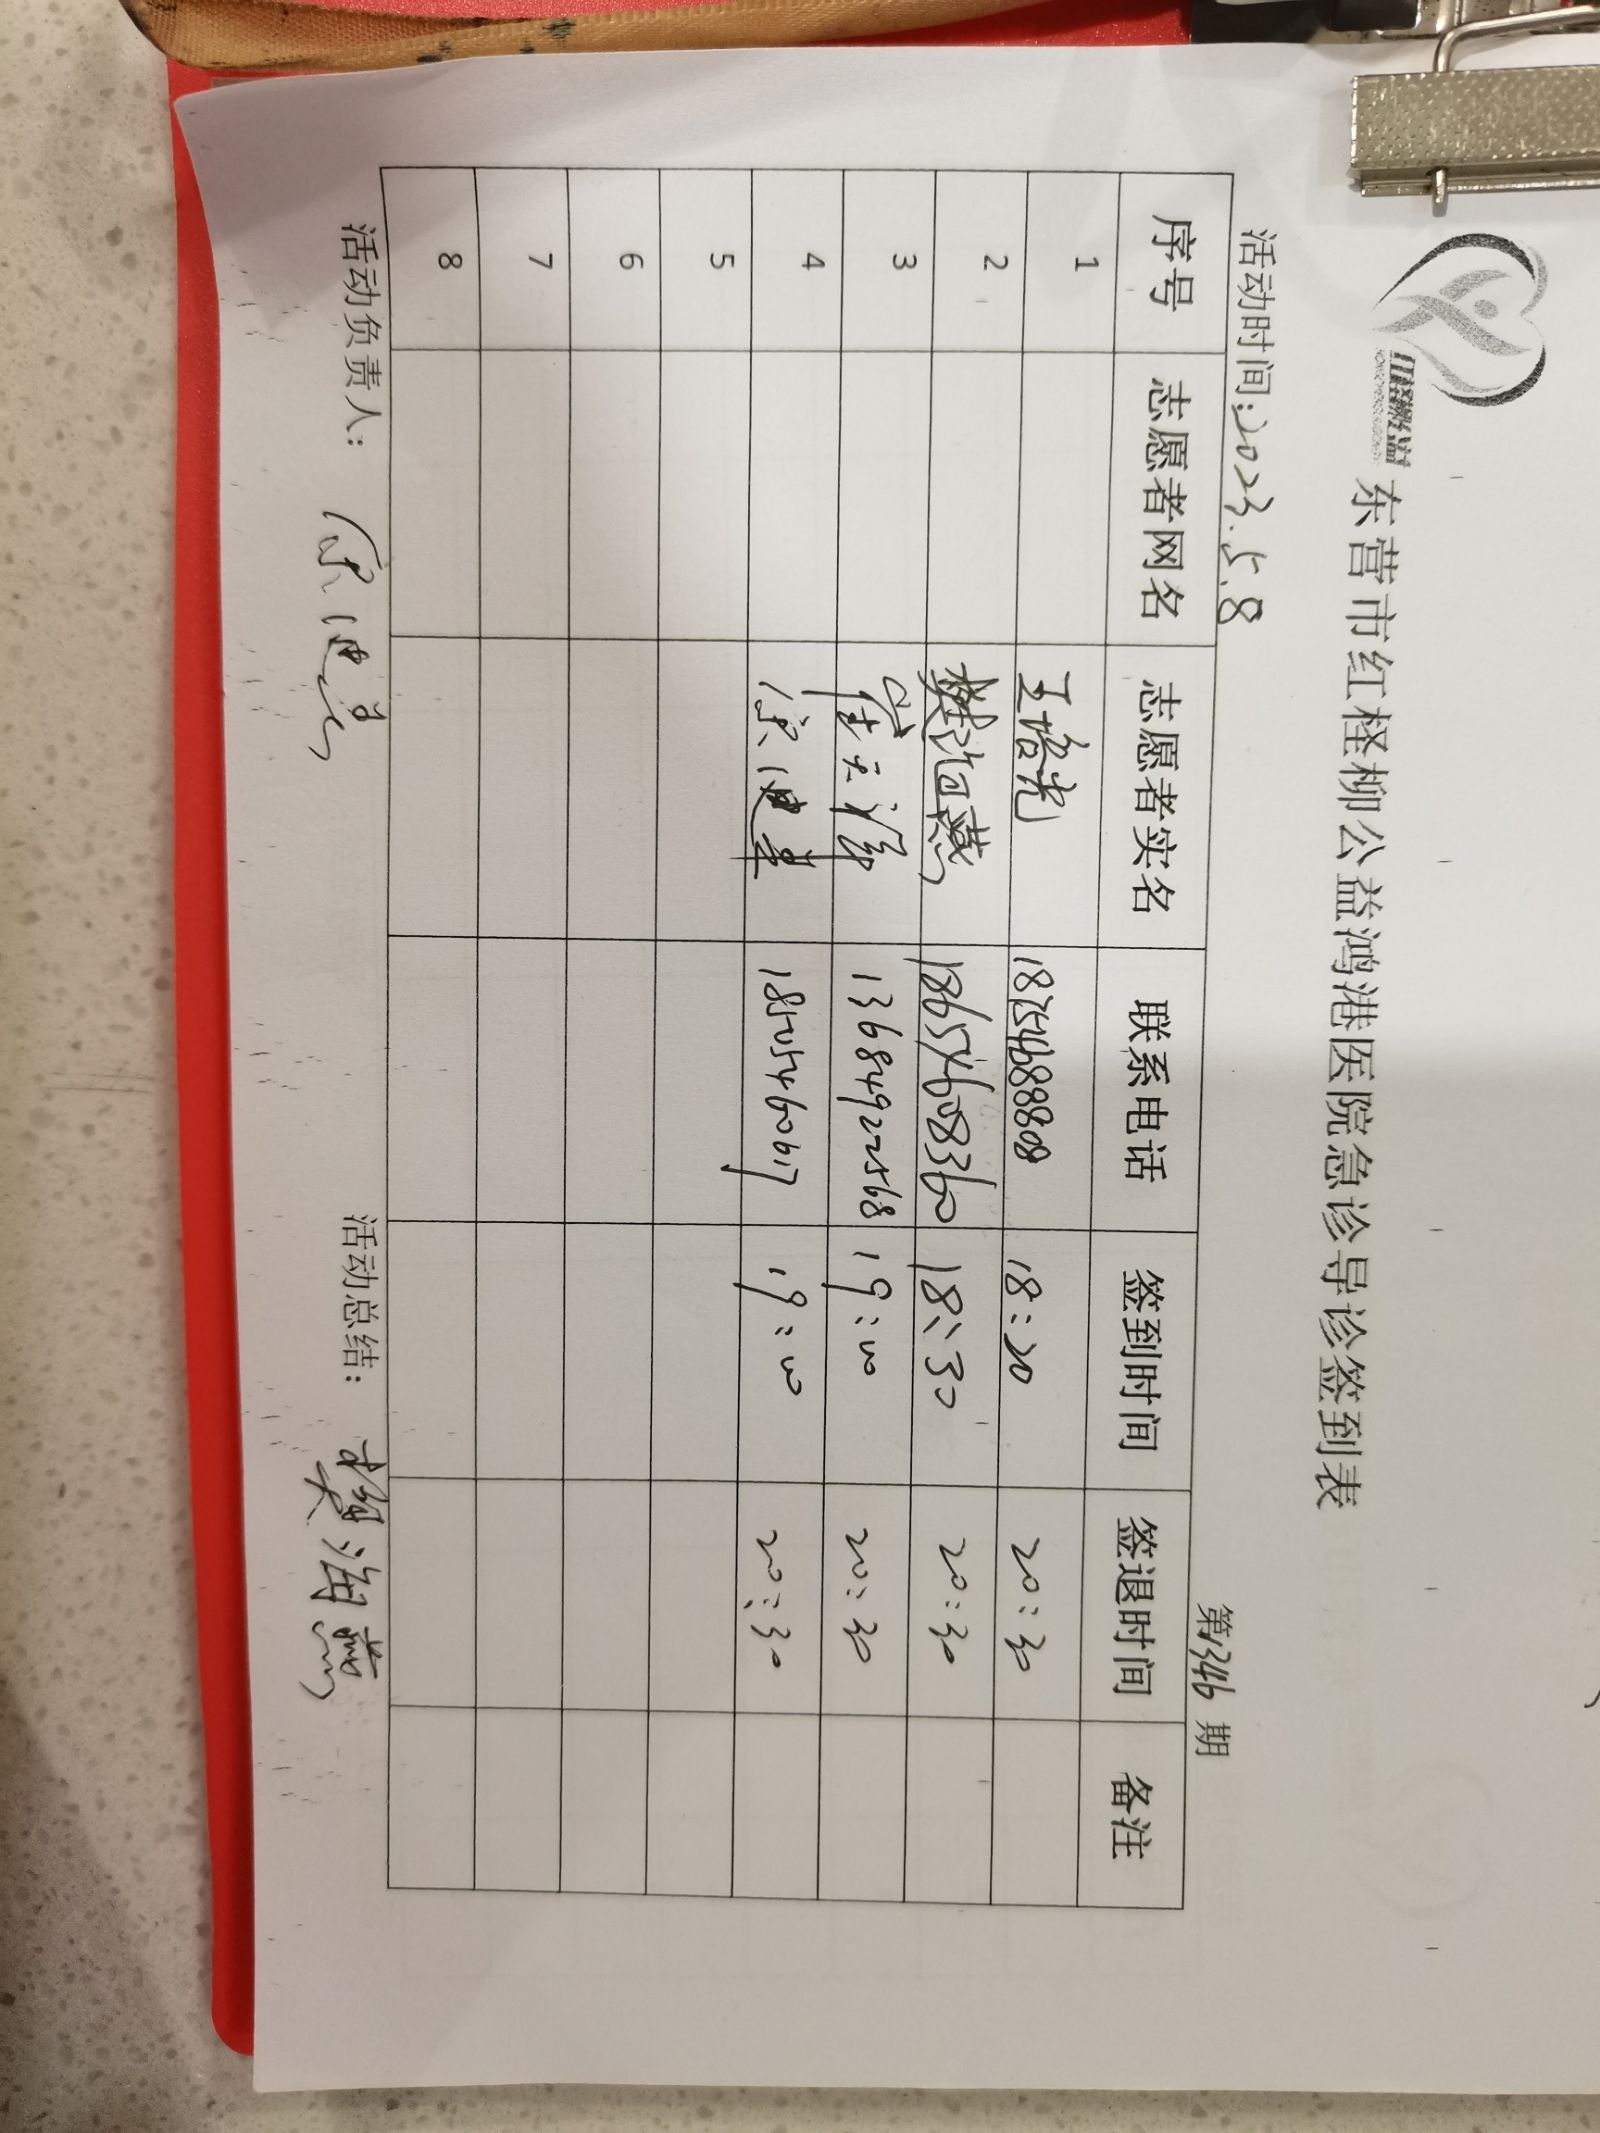 红柽柳公益
东营市红柽柳公益鸿港医院急诊导诊签到表
活动时间:2023.5.8 第1346期
序号 志愿者网名 志愿者实名 联系电话 签到时间 签退时间 备注
1 18254688808 18:20 20:30
2 樊海燕 18654608360 18:30 20:30
3 13684922568 19:00 20:30
4 18505460617 19:00 20:30
5
6
7
8
活动负责人: 活动总结: 樊海燕